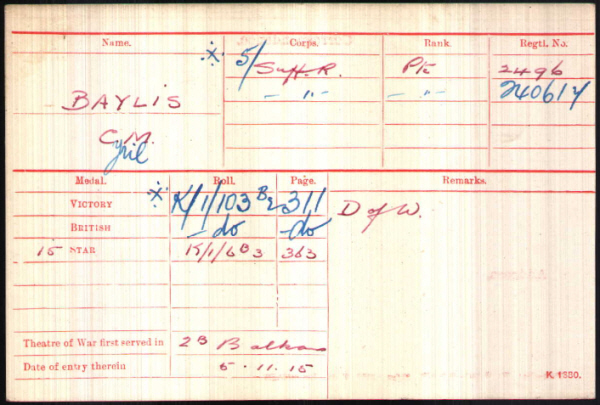 Name. Corps. Rank. Regtl. No.
* 5/ Suff. R. Pte 2496
BAYLIS - " - - " - 240617
C. M.
yril
Medal. Roll. Page. Remarks.
VICTORY * K/1/103 B2 311 D of W.
BRITISH - do - do
15 STAR K/1/6 B3 363
Theatre of War first served in 2B Balkan
Date of entry therein 5.11.15
K. 1380.